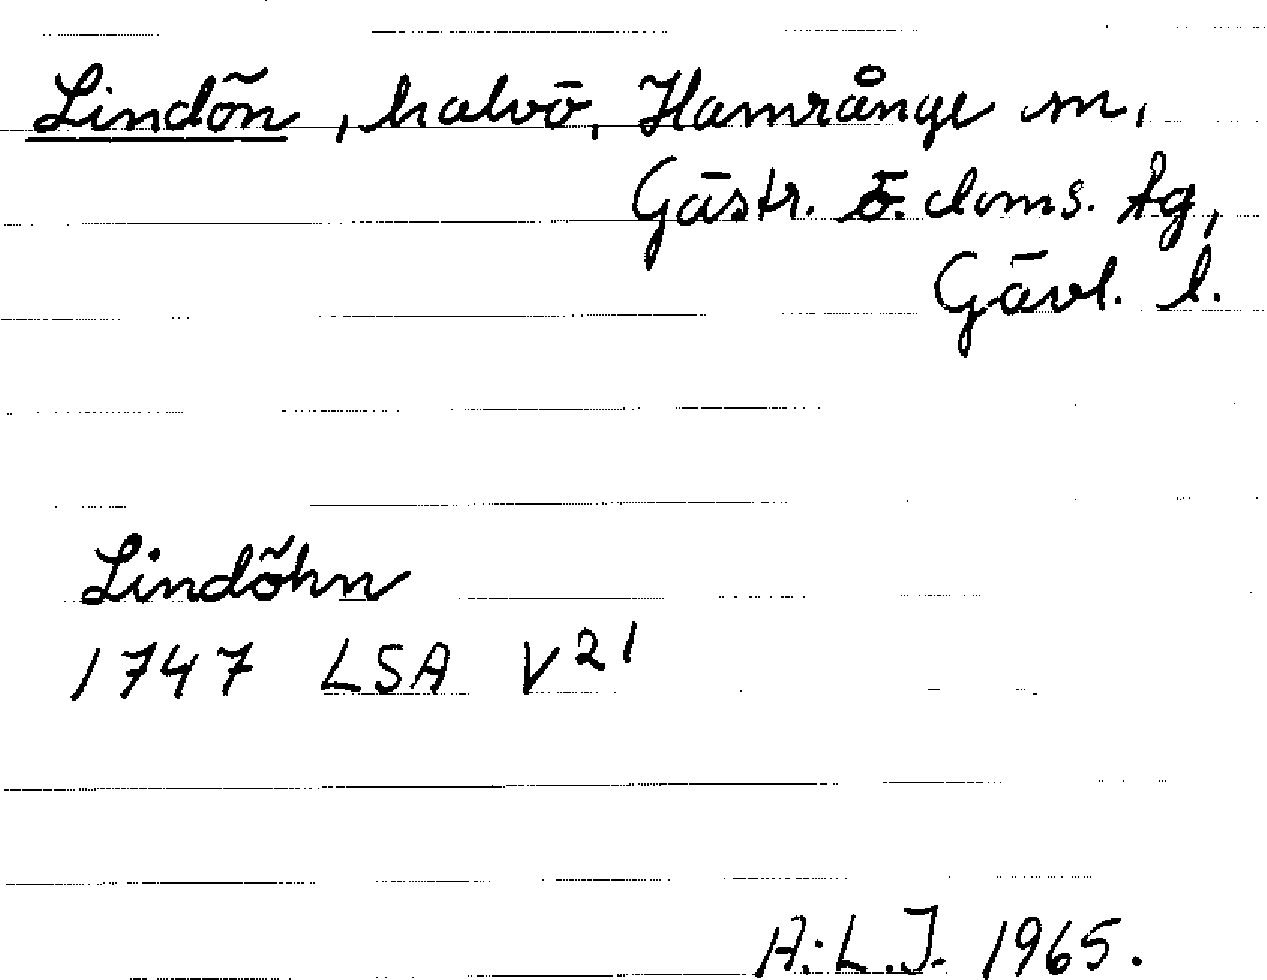 Lindön, halvö, Hamrånge sn,
Gästr. ö. doms. tg,
Gävl. l.
Lindöhn
1747 LSA V21
A:L.J. 1965.